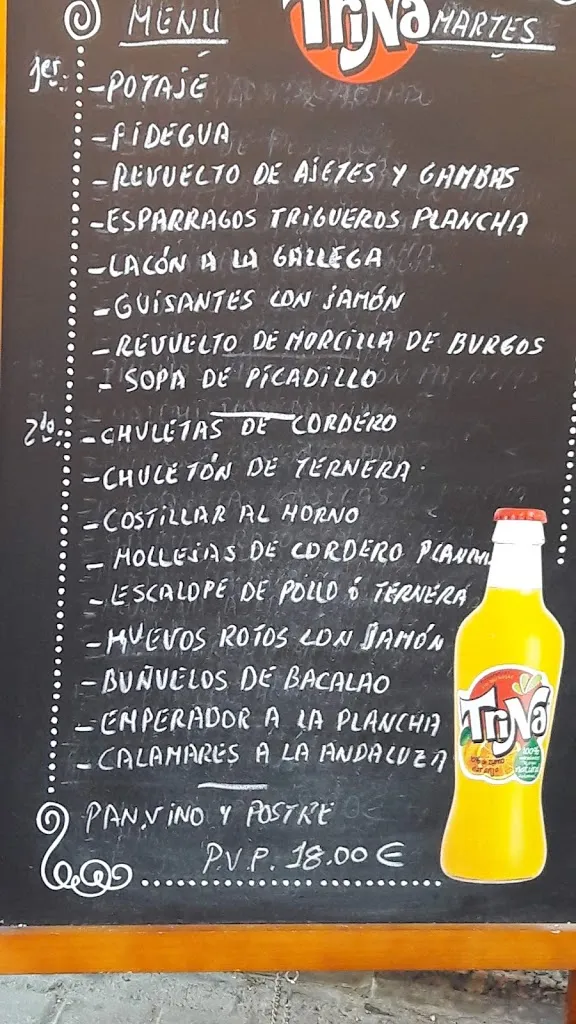 MENÚ
TRiNa
MARTES
1er:
-POTAJE
-FIDEGUA
-REVUELTO DE AJETES Y GAMBAS
-ESPARRAGOS TRIGUEROS PLANCHA
-LACÓN A LA GALLEGA
-GUISANTES CON JAMÓN
-REVUELTO DE MORCILLA DE BURGOS
- SOPA DE PICADILLO
2do:
-CHULETAS DE CORDERO
-CHULETÓN DE TERNERA.
-COSTILLAR AL HORNO
- MOLLEJAS DE CORDERO PLANCHA
- ESCALOPE DE POLLO ó TERNERA
-HUEVOS ROTOS CON JAMÓN
-BUÑUELOS DE BACALAO
-EMPERADOR A LA PLANCHA
-CALAMARES A LA ANDALUZA
TRiNa
100%
PAN,VINO Y POSTRE
P.V.P. 18.00€